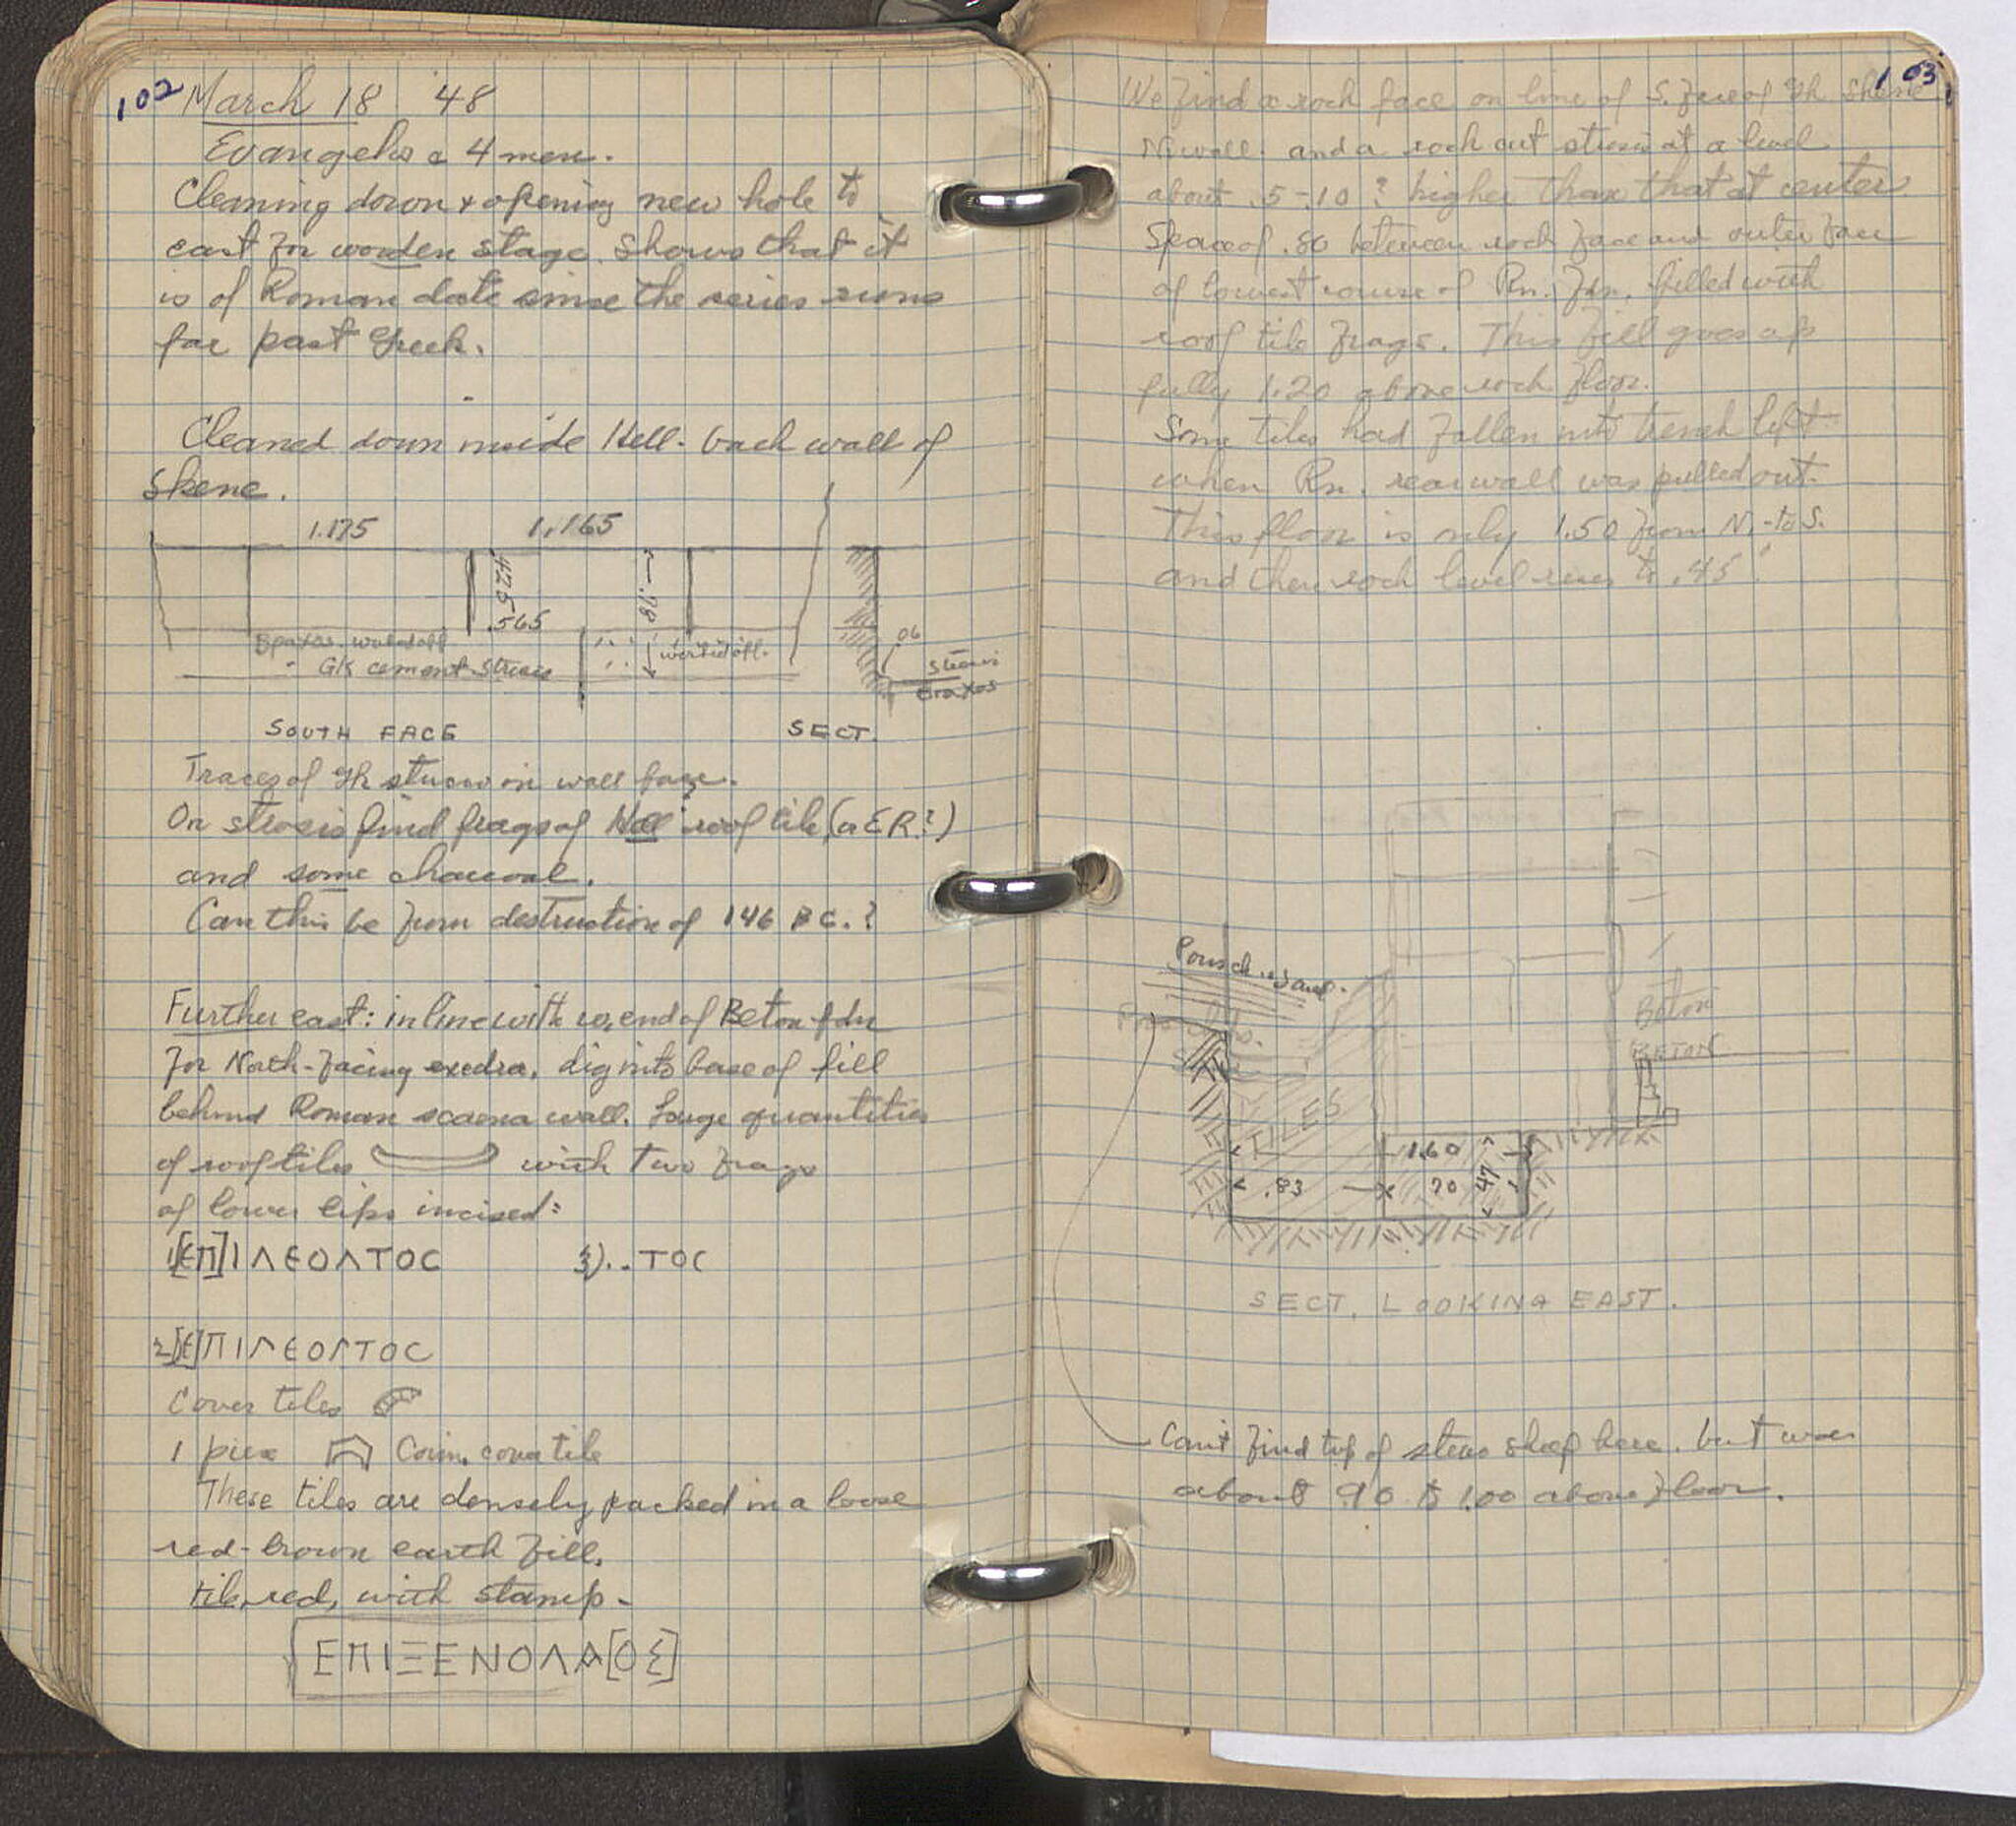 102 March 18 '48
Evangelos & 4 men.
Cleaning down & opening new hole to
east for wooden stage. Shows that it
is of Roman date since the series runs
far past Greek.
Cleaned down inside Hell. back wall of
Skene.
1.175 1.165
.425
.565
.78
GK cement stucco
.06
stucco
Braxos
SOUTH FACE SECT.
Traces of Gk stucco on wall face.
On strosis find frags of Hell roof tile (or ER?)
and some charcoal.
Can this be from destruction of 146 BC.?
Further east: in line with w. end of Beton fdn
for North-facing exedra, dig into base of fill
behind Roman scaena wall. Large quantities
of roof tiles with two frags
of lower lips incised:
1)[ЄΠ]ΙΛЄΟΛΤΟC 3)..ΤΟC
2)[Є]ΠΙΛЄΟΛΤΟC
Cover tiles
1 piece Corin. cover tile
These tiles are densely packed in a loose
red-brown earth fill.
tile, red, with stamp-
ΕΠΙΞΕΝΟΛΑ[ΟΣ]
103
We find a rock face on line of S. face of Gk Skene
N. wall. and a rock cut strosis at a level
about .5-.10? higher than that at center
Space of .80 between rock face and outer face
of lowest course of Rn. fdn. filled with
roof tile frags. This fill goes up
fully 1.20 above rock floor.
Some tiles had fallen into trench left
when Rn. rear wall was pulled out.
This floor is only 1.50 from N.-to S.
and then rock level rises to .45
Beton
BETON
TILES
1.60
.83 70 47
SECT. LOOKING EAST.
Can't find top of here. but was
about .90 to 1.00 above floor.